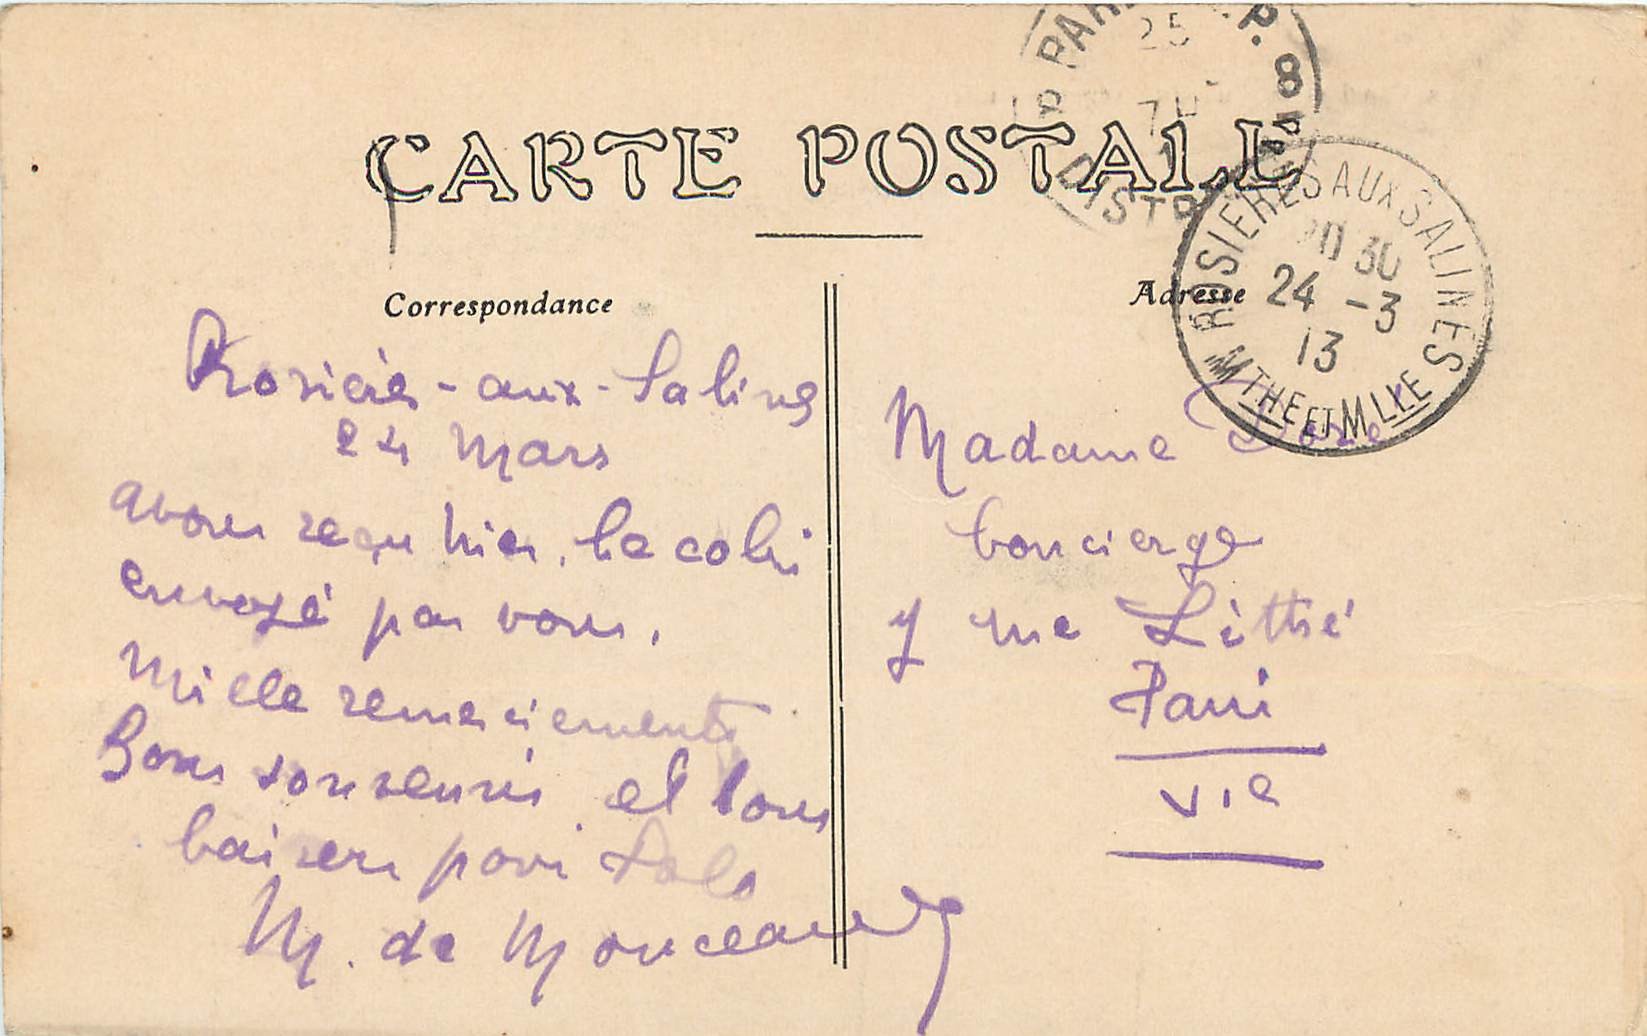 CARTE POSTALE
Correspondance
Rosières-aux-Salines
24 Mars
avons reçu hier, le colis
envoyé par vous.
Mille remerciements
Bons souvenirs et bons
baisers pour
M. de Monceau
Adresse
Madame
Concierge
rue Littré
Paris
VIe
PARIS
25
P. 8
DISTR
ROSIERES AUX SALINES
30
24 -3
13
MTHE ET MLLE